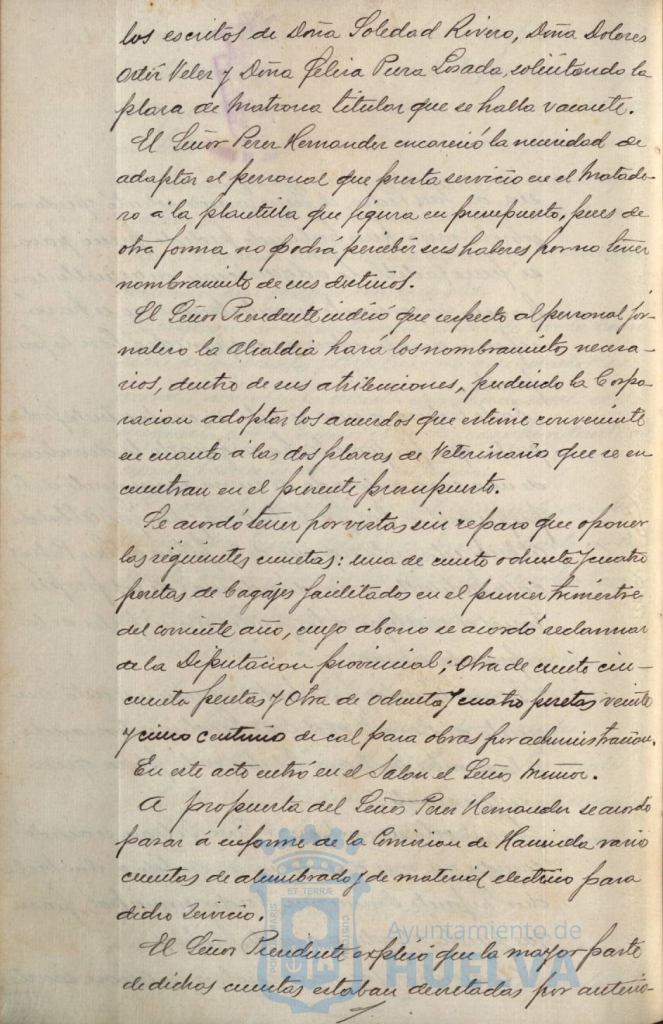 los escritos de Doña Soledad Rivero, Doña Dolores
Ortíz Velez y Doña Felicia Parra Losada, solicitando la
plaza de Matrona titular que se halla vacante.
El Señor Perez Hernandez encareció la necesidad de
adaptar el personal que presta servicio en el Matade-
ro á la plantilla que figura en presupuesto, pues de
otra forma no podrá percibir sus haberes por no tener
nombramiento de sus destinos.
El Señor Presidente indicó que respecto al personal jor-
nalero la Alcaldia hará los nombramientos necesa-
rios, dentro de sus atribuciones, pudiendo la Corpo-
racion adoptar los acuerdos que estime conveniente
en cuanto á las dos plazas de Veterinario que se en-
cuentran en el presente presupuesto.
Se acordó tener por vistas sin reparo que oponer
las siguientes cuentas: una de ciento ochenta y cuatro
pesetas de bagajes facilitados en el primer trimestre
del corriente año, cuyo abono se acordó reclamar
de la Diputacion provincial; Otra de ciento cin-
cuenta pesetas y Otra de ochenta y cuatro pesetas veinte
y cinco centimo de cal para obras por administracion.
En este acto entró en el Salon el Señor Muñoz.
A propuesta del Señor Perez Hernandez se acordó
pasar á informe de la Comision de Hacienda vario
cuentas de alumbrado y de material electrico para
dicho servicio.
El Señor Presidente explicó que la mayor parte
de dichas cuentas estaban decretadas por anterio-
Ayuntamiento de
HUELVA